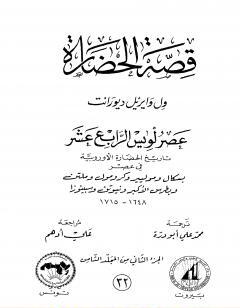 قصة الحضارة
ول وايريل ديورانت
عصر لويس الرابع عشر
تاريخ الحضارة الأوروبية
في عصر
بسكال وموليير وكرومول وملتن
وبطرس الأكبر ونيوتن وسبينوزا
١٦٤٨ - ١٧١٥
ترجمة
محمد علي أبو درة
مراجعة
علي أدهم
الجزء الثاني من المجلد الثامن
٣٢
بيروت
تونس